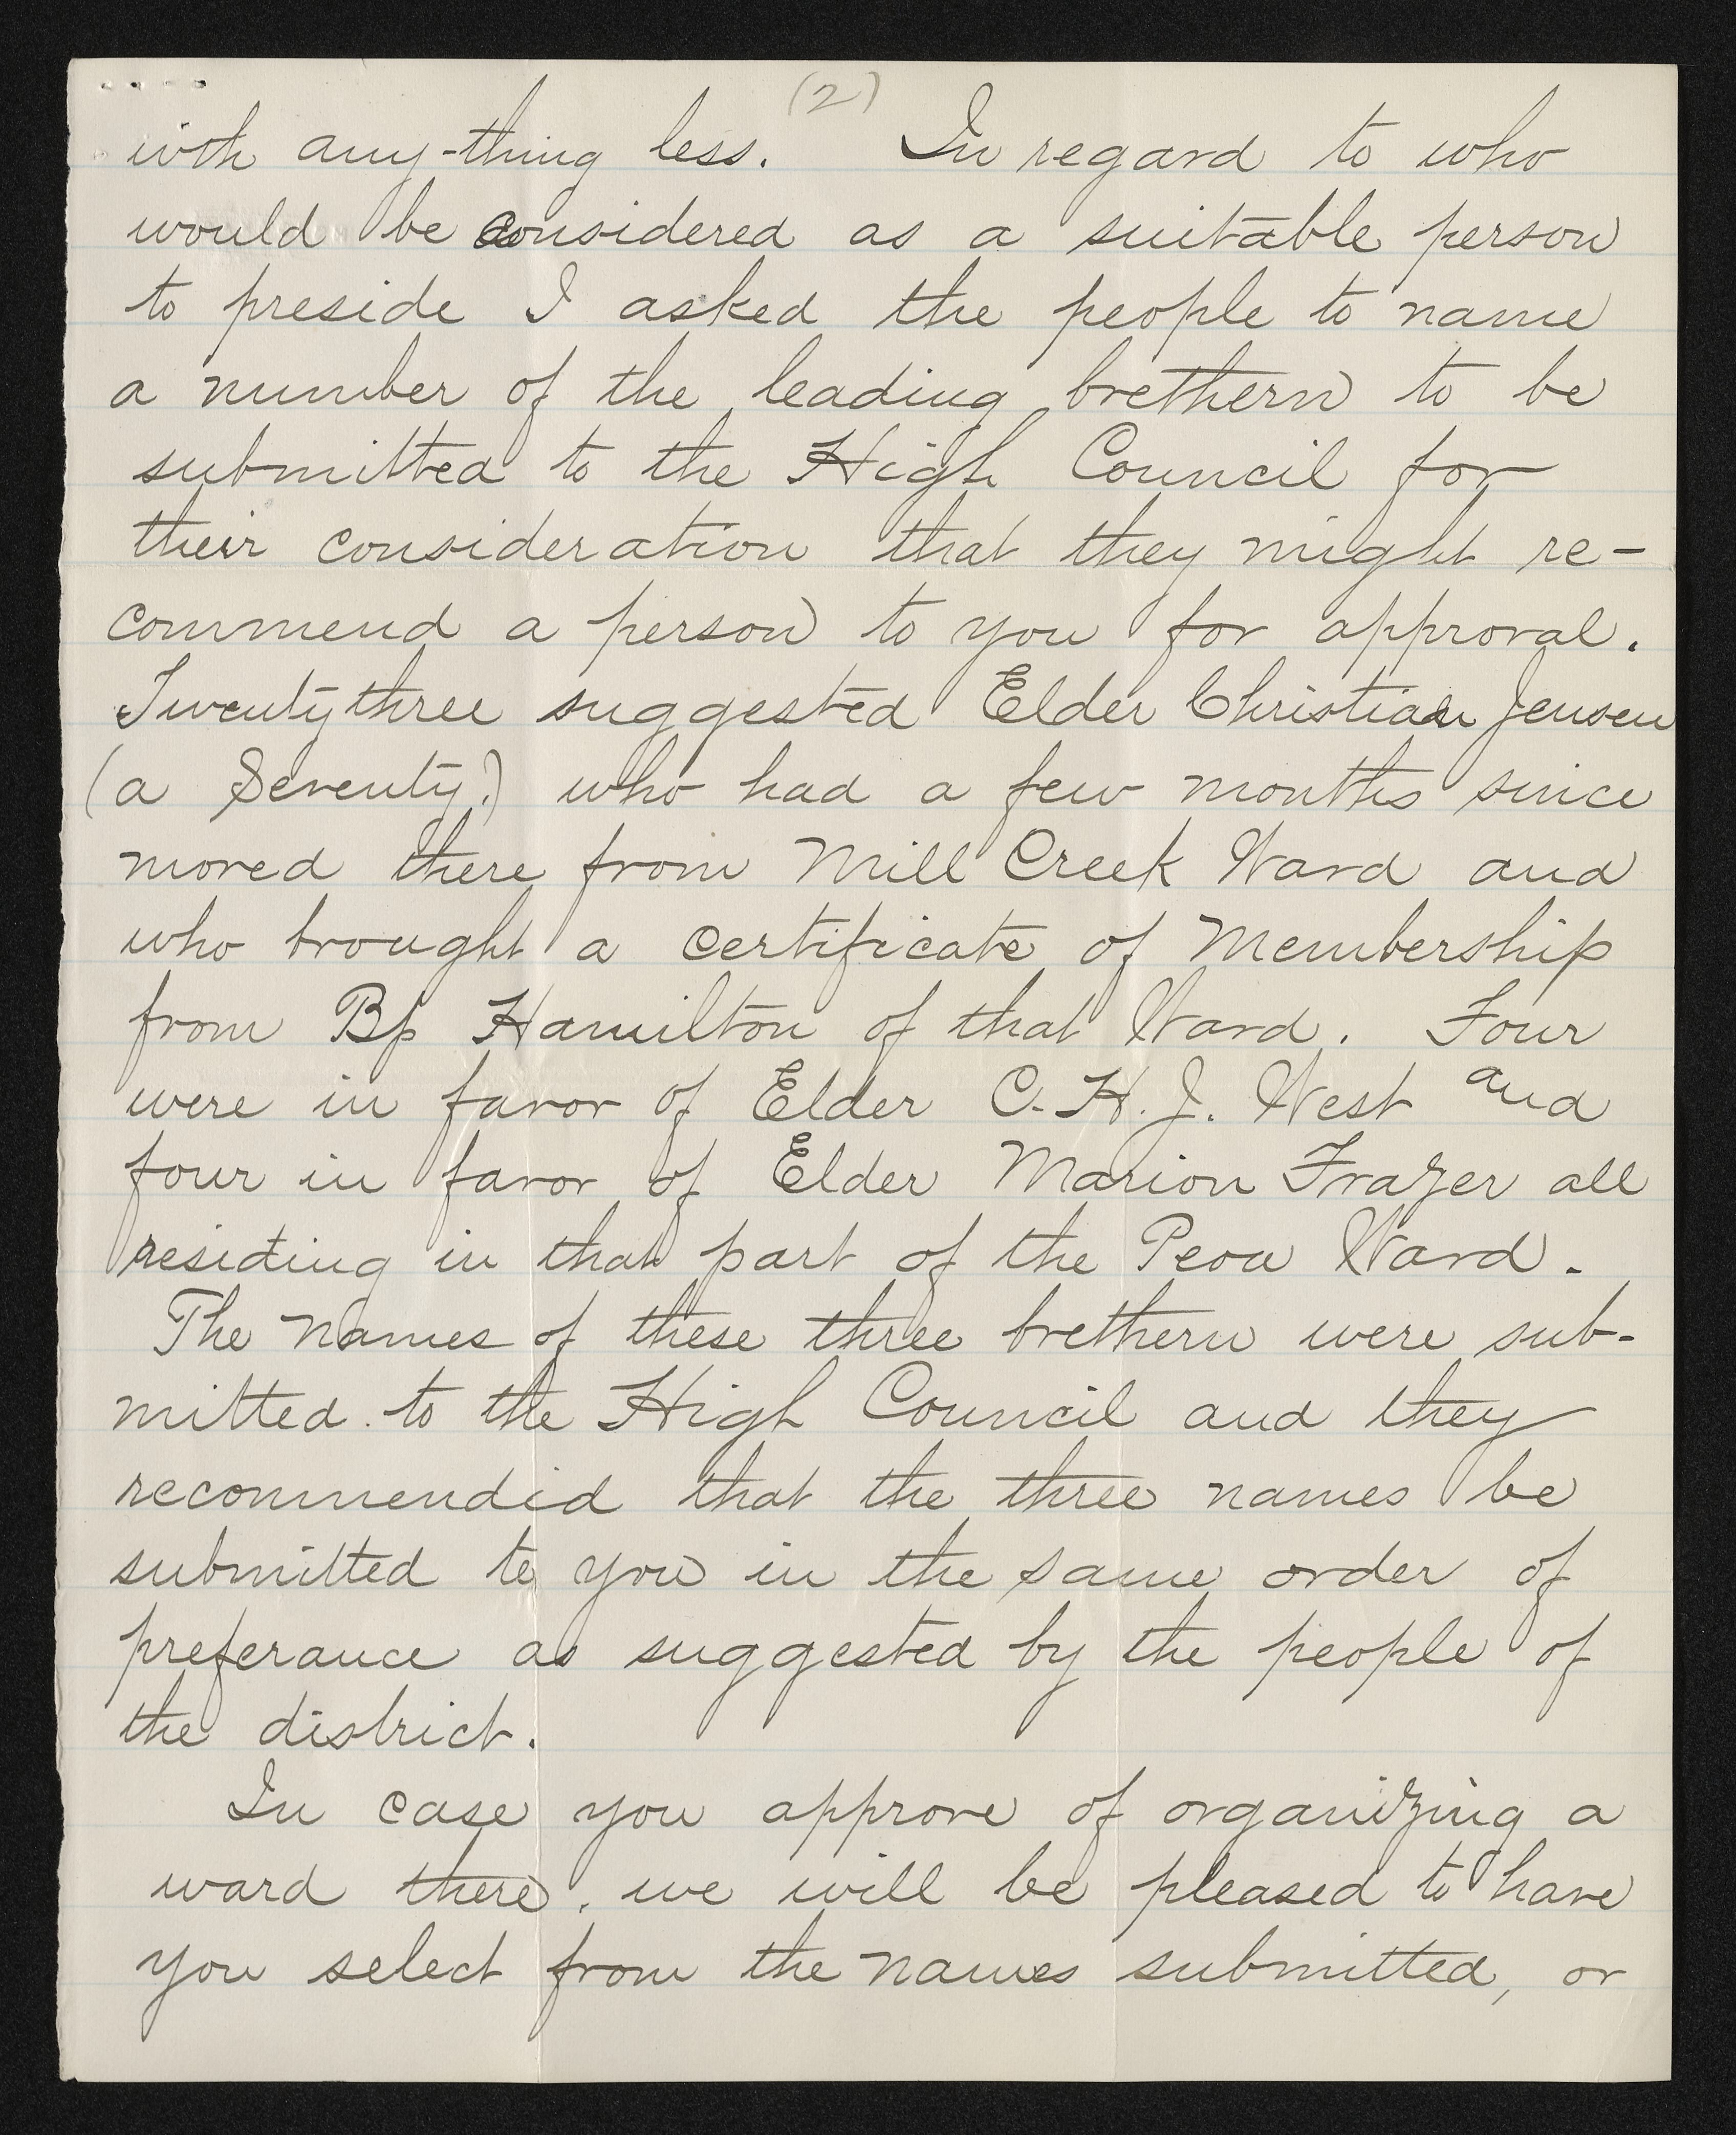 (2)
with any-thing less. In regard to who
would be considered as a suitable person
to preside I asked the people to name
a number of the leading brethern to be
submitted to the High Council for
their consideration that they might re-
commend a person to you for approval.
Twenty three suggested Elder Christian Jensen
(a Seventy.) who had a few months since
moved there from Mill Creek Ward and
who brought a certificate of Membership
from Bp Hamilton of that Ward. Four
were in favor of Elder C. H. J. West and
four in favor of Elder Marion Frazer all
residing in that part of the Peoa Ward.
The names of these three brethern were sub-
mitted to the High Council and they
recommendid that the three names be
submitted to you in the same order of
preferance as suggested by the people of
the district.
In case you approve of organizing a
ward there, we will be pleased to have
you select from the names submitted, or